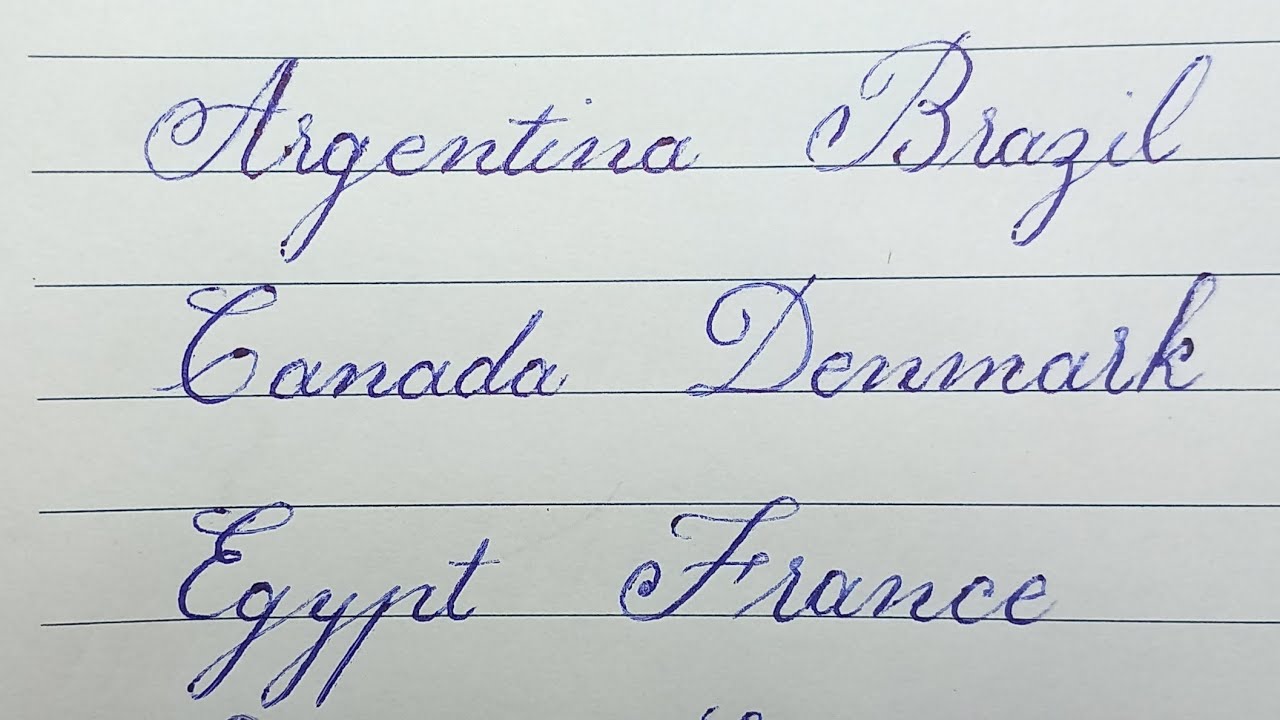 Argentina Brazil
Canada Denmark
Egypt France